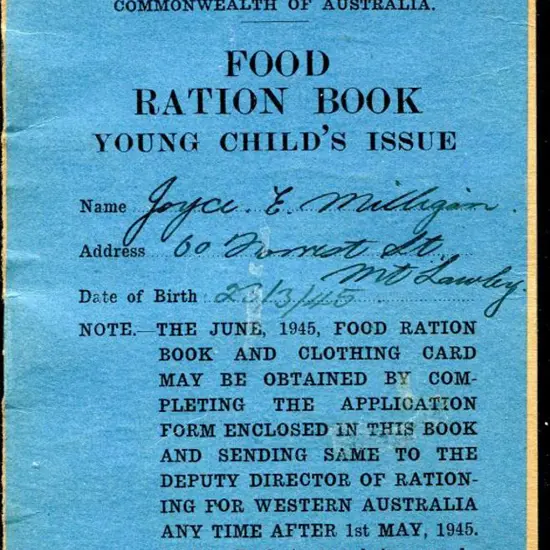 COMMONWEALTH OF AUSTRALIA.
FOOD
RATION BOOK
YOUNG CHILD'S ISSUE
Name Joyce. E. Milligan.
Address 60 Forrest St.
Mt Lawley
Date of Birth 23/3/45
NOTE.—THE JUNE, 1945, FOOD RATION
BOOK AND CLOTHING CARD
MAY BE OBTAINED BY COM-
PLETING THE APPLICATION
FORM ENCLOSED IN THIS BOOK
AND SENDING SAME TO THE
DEPUTY DIRECTOR OF RATION-
ING FOR WESTERN AUSTRALIA
ANY TIME AFTER 1st MAY, 1945.